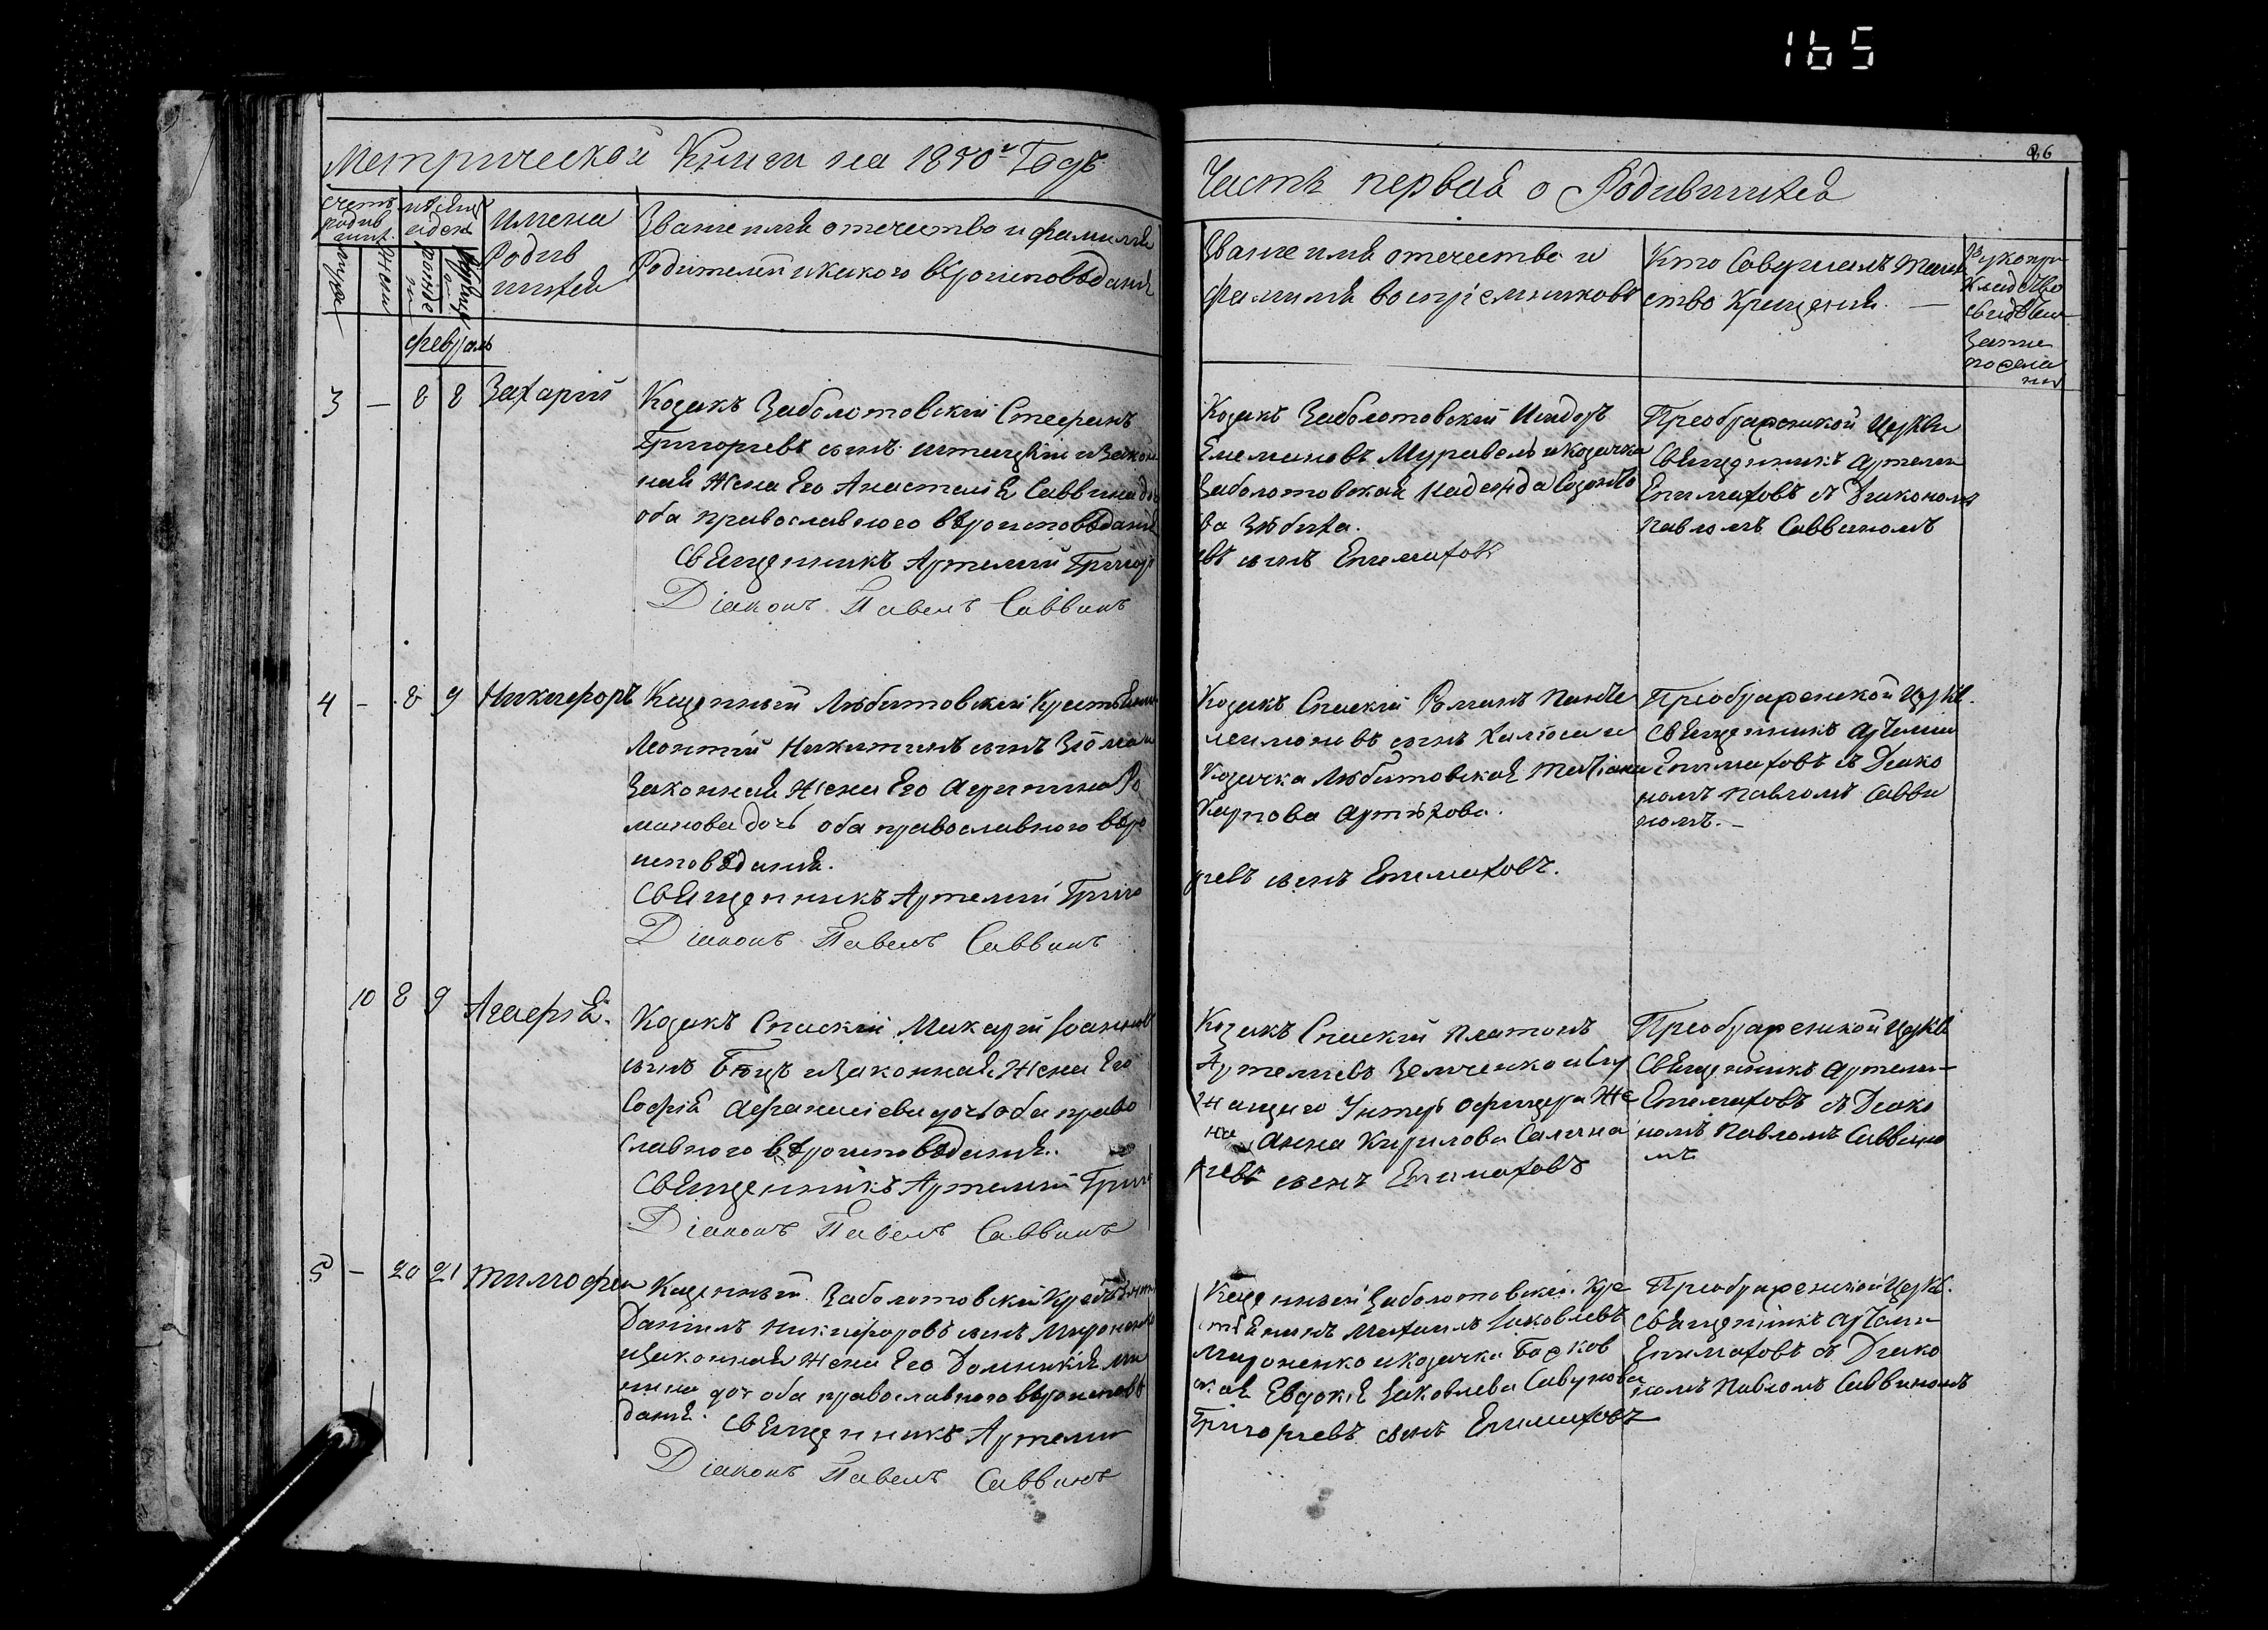 165
86
Метрической Книги на 1850й Годъ
Часть первая о Родившихся
счетъ родив шихъ
мѣсяцъ и день
Имена Родив шихся
Званіе имя отечество и фамилія
Родителей и какого вѣроисповѣданія
муж
жен
рожде
февраль
Званіе имя отечество и
фамилія воспріемниковъ
Кто Совершалъ Таин
ство Крещенія
Рукопри
кладство
свидѣтел
Записи
по жела
нію
3 — 8 8 Захарій
Козакъ Заболотовскій Стефанъ
Григорьевъ сынъ и Закон
ная Жена Его Анастасія Саввина до
оба православного вѣроисповѣданія
Священникъ Артемій Григор
Діаконъ Павелъ Саввинъ
Козакъ Заболотовскій Исидоръ
Емеліановъ Муравель и козачка
Заболотовская Надежда
ва
евъ сынъ Епимаховъ
Преображенской Церкви
Священникъ Артемій
Епимаховъ съ Діакономъ
Павломъ Саввиномъ
4 — 8 9 Никифоръ
Казенный Любитовскій Крестьянин
Леонтій Никитинъ сынъ
Законная Жена Его Агрипина Ро
манова дочь оба православного вѣро
исповѣданія.
Священникъ Артемій Григо
Діаконъ Павелъ Саввинъ
Козакъ Спаскій Романъ Панте
леимоновъ сынъ и
Козачка Любитовская Татіана
Карпова Артюхова.
рьевъ сынъ Епимаховъ.
Преображенской Церкв.
Священникъ Артемій
Епимаховъ съ Діако
номъ Павломъ Савви
номъ. —
10 8 9 Агафія.
Козакъ Спаскій Макарій Іоанновъ
сынъ и Законная Жена Его
Софія Афанасіева дочь оба право
славного вѣроисповѣданія.
Священникъ Артемій Григ
Діаконъ Павелъ Саввинъ
Козакъ Спаскій Платонъ
Артеміевъ Зенченко и слу
жащаго Унтеръ офицера Же
на Анна Кирилова
рьевъ сынъ Епимаховъ
Преображенской Церкв
Священникъ Артемій
Епимаховъ съ Діако
номъ Павломъ Саввино
мъ
5 — 20 21 Тимофей
Казенный Заболотовскій Крестьянин
Даніилъ Никифоровъ сынъ Мироненко
и Законная Жена Его Домникія
нина доч оба православного вѣроисповѣ
данія. Священникъ Артемій
Діаконъ Павелъ Саввинъ
Казенный Заболотовскій Кре
стьянинъ Михаилъ Іаковлевъ
Мироненко и козачка
ская Евдокія Іаковлева
Григорьевъ сынъ Епимаховъ
Преображенской Церкв.
Священникъ Артемій
Епимаховъ съ Діако
номъ Павломъ Саввиномъ